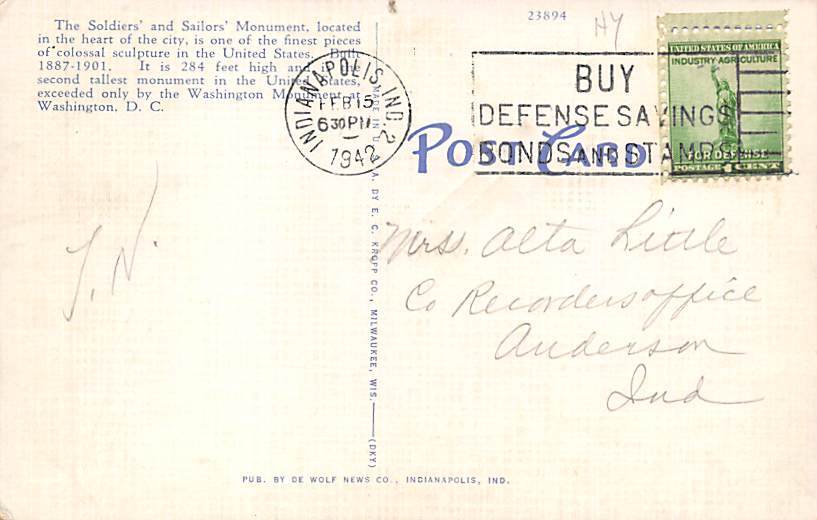 The Soldiers' and Sailors' Monument, located
in the heart of the city, is one of the finest pieces
of colossal sculpture in the United States. Built
1887-1901. It is 284 feet high and is the
second tallest monument in the United States,
exceeded only by the Washington Monument at
Washington, D. C.
23894
HY
INDIANAPOLIS, IND. 2
FEB 15
6 30 PM
1942
BUY
DEFENSE SAVINGS
BONDS AND STAMPS
UNITED STATES OF AMERICA
INDUSTRY AGRICULTURE
FOR DEFENSE
POSTAGE 1 CENT
POST CARD
MADE IN U. S. A. BY E. C. KROPP CO., MILWAUKEE, WIS.
(DKY)
Mrs. Alta Little
Co Recorders office
Anderson
Ind
PUB. BY DE WOLF NEWS CO., INDIANAPOLIS, IND.